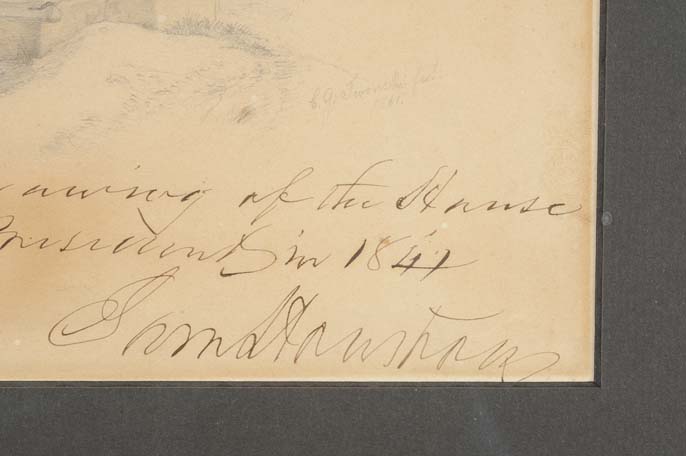 1861.
awing of the House
President in 1841
Sam Houston